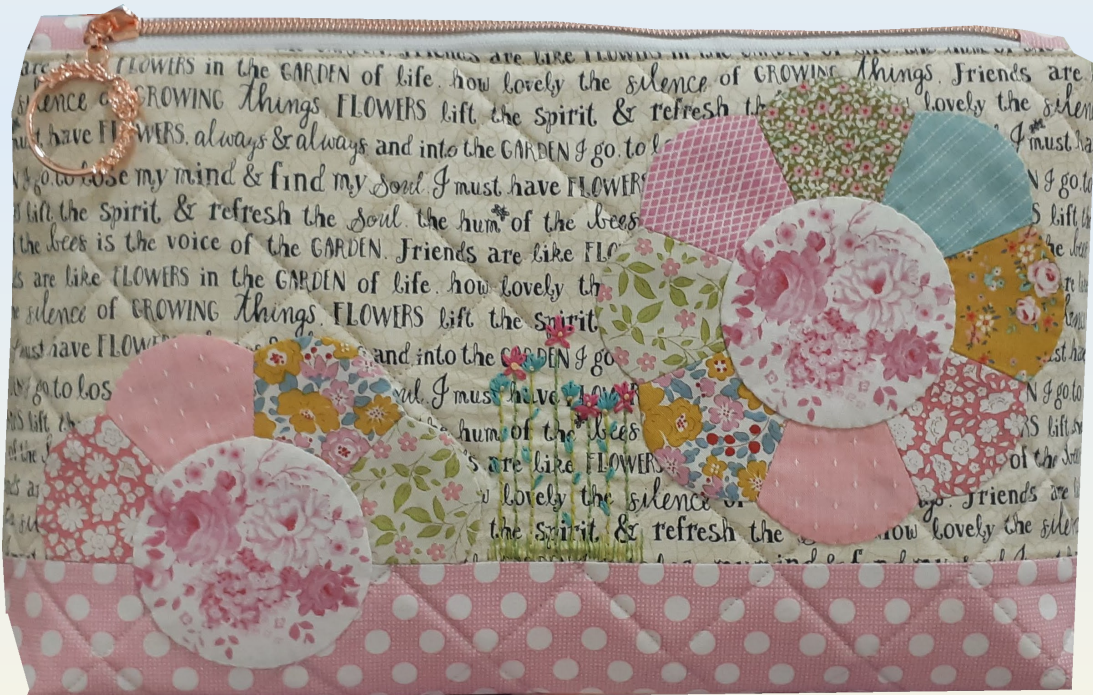 are like FLOWERS in the
are FLOWERS in the GARDEN of life. how lovely the silence of GROWING things. Friends are
silence of GROWING things FLOWERS lift the spirit & refresh th lovely the silen
must have FLOWERS. always & always and into the GARDEN I go. to l I must ha
I go. to lose my mind & find my Soul. I must have FLOWER N I go. to
lift the spirit & refresh the Soul. the hum of the bees S lift the
the bees is the voice of the GARDEN. Friends are like FLO he
s are like FLOWERS in the GARDEN of life. how lovely th re
silence of GROWING things FLOWERS lift the spirit
must have FLOW and into the GARDEN I go
I go to los ul. I must have FLOWER N I go to
lift th hum of the bees S lift
of the s are like FLOWERS of the
lovely the silence Friends are
the spirit & refresh the how lovely the silen
mind & find my